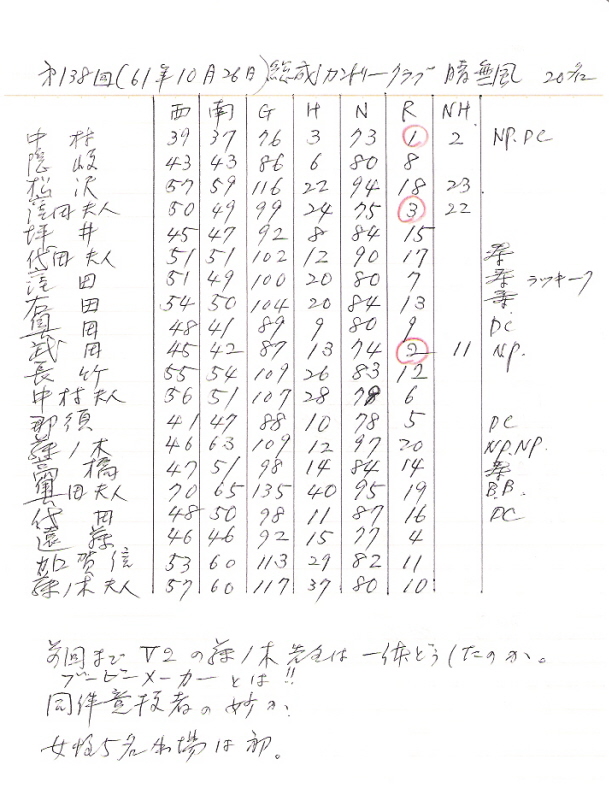 第138回(61年10月26日)総成カントリークラブ 晴無風 20名/2
西 南 G H N R NH.
中村 39 37 76 3 73 1 2 NP.DC
隠岐 43 43 86 6 80 8
松沢 57 59 116 22 94 18 23
窪田夫人 50 49 99 24 75 3 22
坪井 45 47 92 8 84 15
代田夫人 51 51 102 12 90 17
窪田 51 49 100 20 80 7 ラッキーク
右田 54 50 104 20 84 13
真岡 48 41 89 9 80 9 DC
武岡 45 42 87 13 74 2 11 NP.
長竹 55 54 109 26 83 12
中村夫人 56 51 107 28 78 6
那須 41 47 88 10 78 5 DC
藤ノ木 46 63 109 12 97 20 NP.NP.
高橋 47 51 98 14 84 14
田夫人 70 65 135 40 95 19 B.B.
代田 48 50 98 11 87 16 DC
遠藤 46 46 92 15 77 4
加賀信 53 60 113 29 82 11
藤ノ木夫人 57 60 117 37 80 10
前回までV2の藤ノ木先生は一体どうしたのか。
ブービーメーカーとは!!
同伴競技者の妙か.
女性5名出場は初。